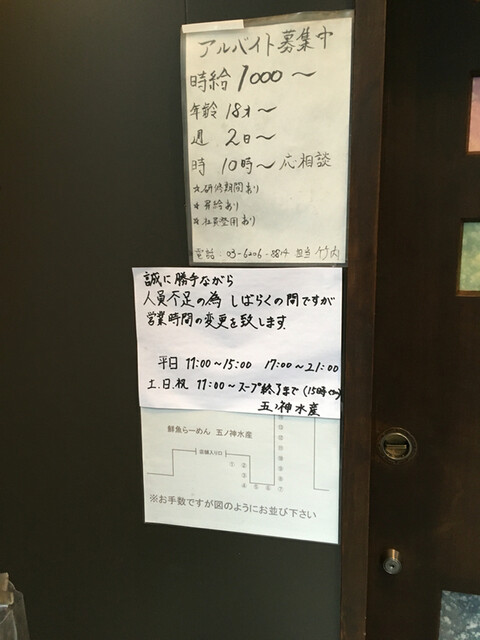 アルバイト募集中
時給 1000〜
年齢 18才〜
週 2日〜
時 10時〜 応相談
☆研修期間あり
☆昇給あり
☆社員登用あり
電話: 03-6206- 担当 竹内
誠に勝手ながら
人員不足の為 しばらくの間ですが
営業時間の変更を致します.
平日 11:00〜15:00 17:00〜21:00
土.日.祝 11:00〜スープ終了まで (15時
五ノ神水産
鮮魚らーめん 五ノ神水産
店頭入り口
① ② ③ ④ ⑤ ⑥ ⑦ ⑧ ⑨ ⑩ ⑪ ⑫ ⑬
※お手数ですが図のようにお並び下さい